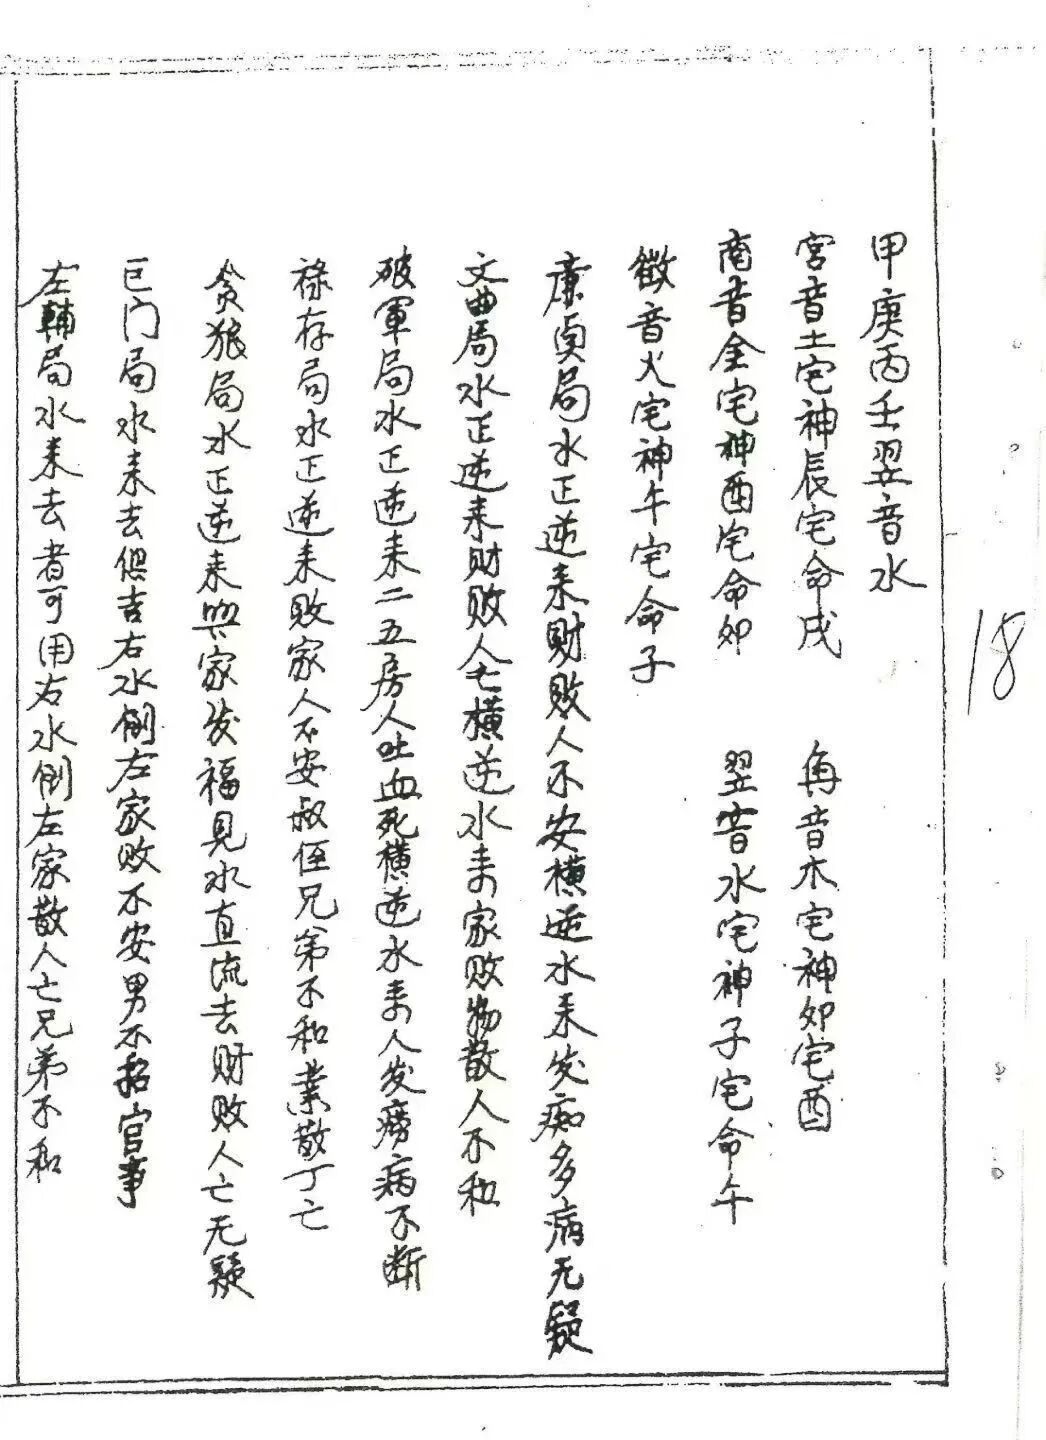 甲庚丙壬翌音水
宮音土宅神辰宅命戌 角音木宅神卯宅酉
商音金宅神酉宅命卯 翌音水宅神子宅命午
徵音火宅神午宅命子
廉貞局水正逆来財敗人不安横逆水来发痴多病无疑
文曲局水正逆来财败人亡横逆水来家败物散人不和
破軍局水正逆来二五房人吐血死横逆水来人发癆病不断
禄存局水正逆来敗家人不安叔侄兄弟不和業散丁亡
贪狼局水正逆来興家发福見水直流去财败人亡无疑
巨门局水来去俱吉右水倒左家败不安男不招官事
左輔局水来去者可用右水倒左家散人亡兄弟不和
18